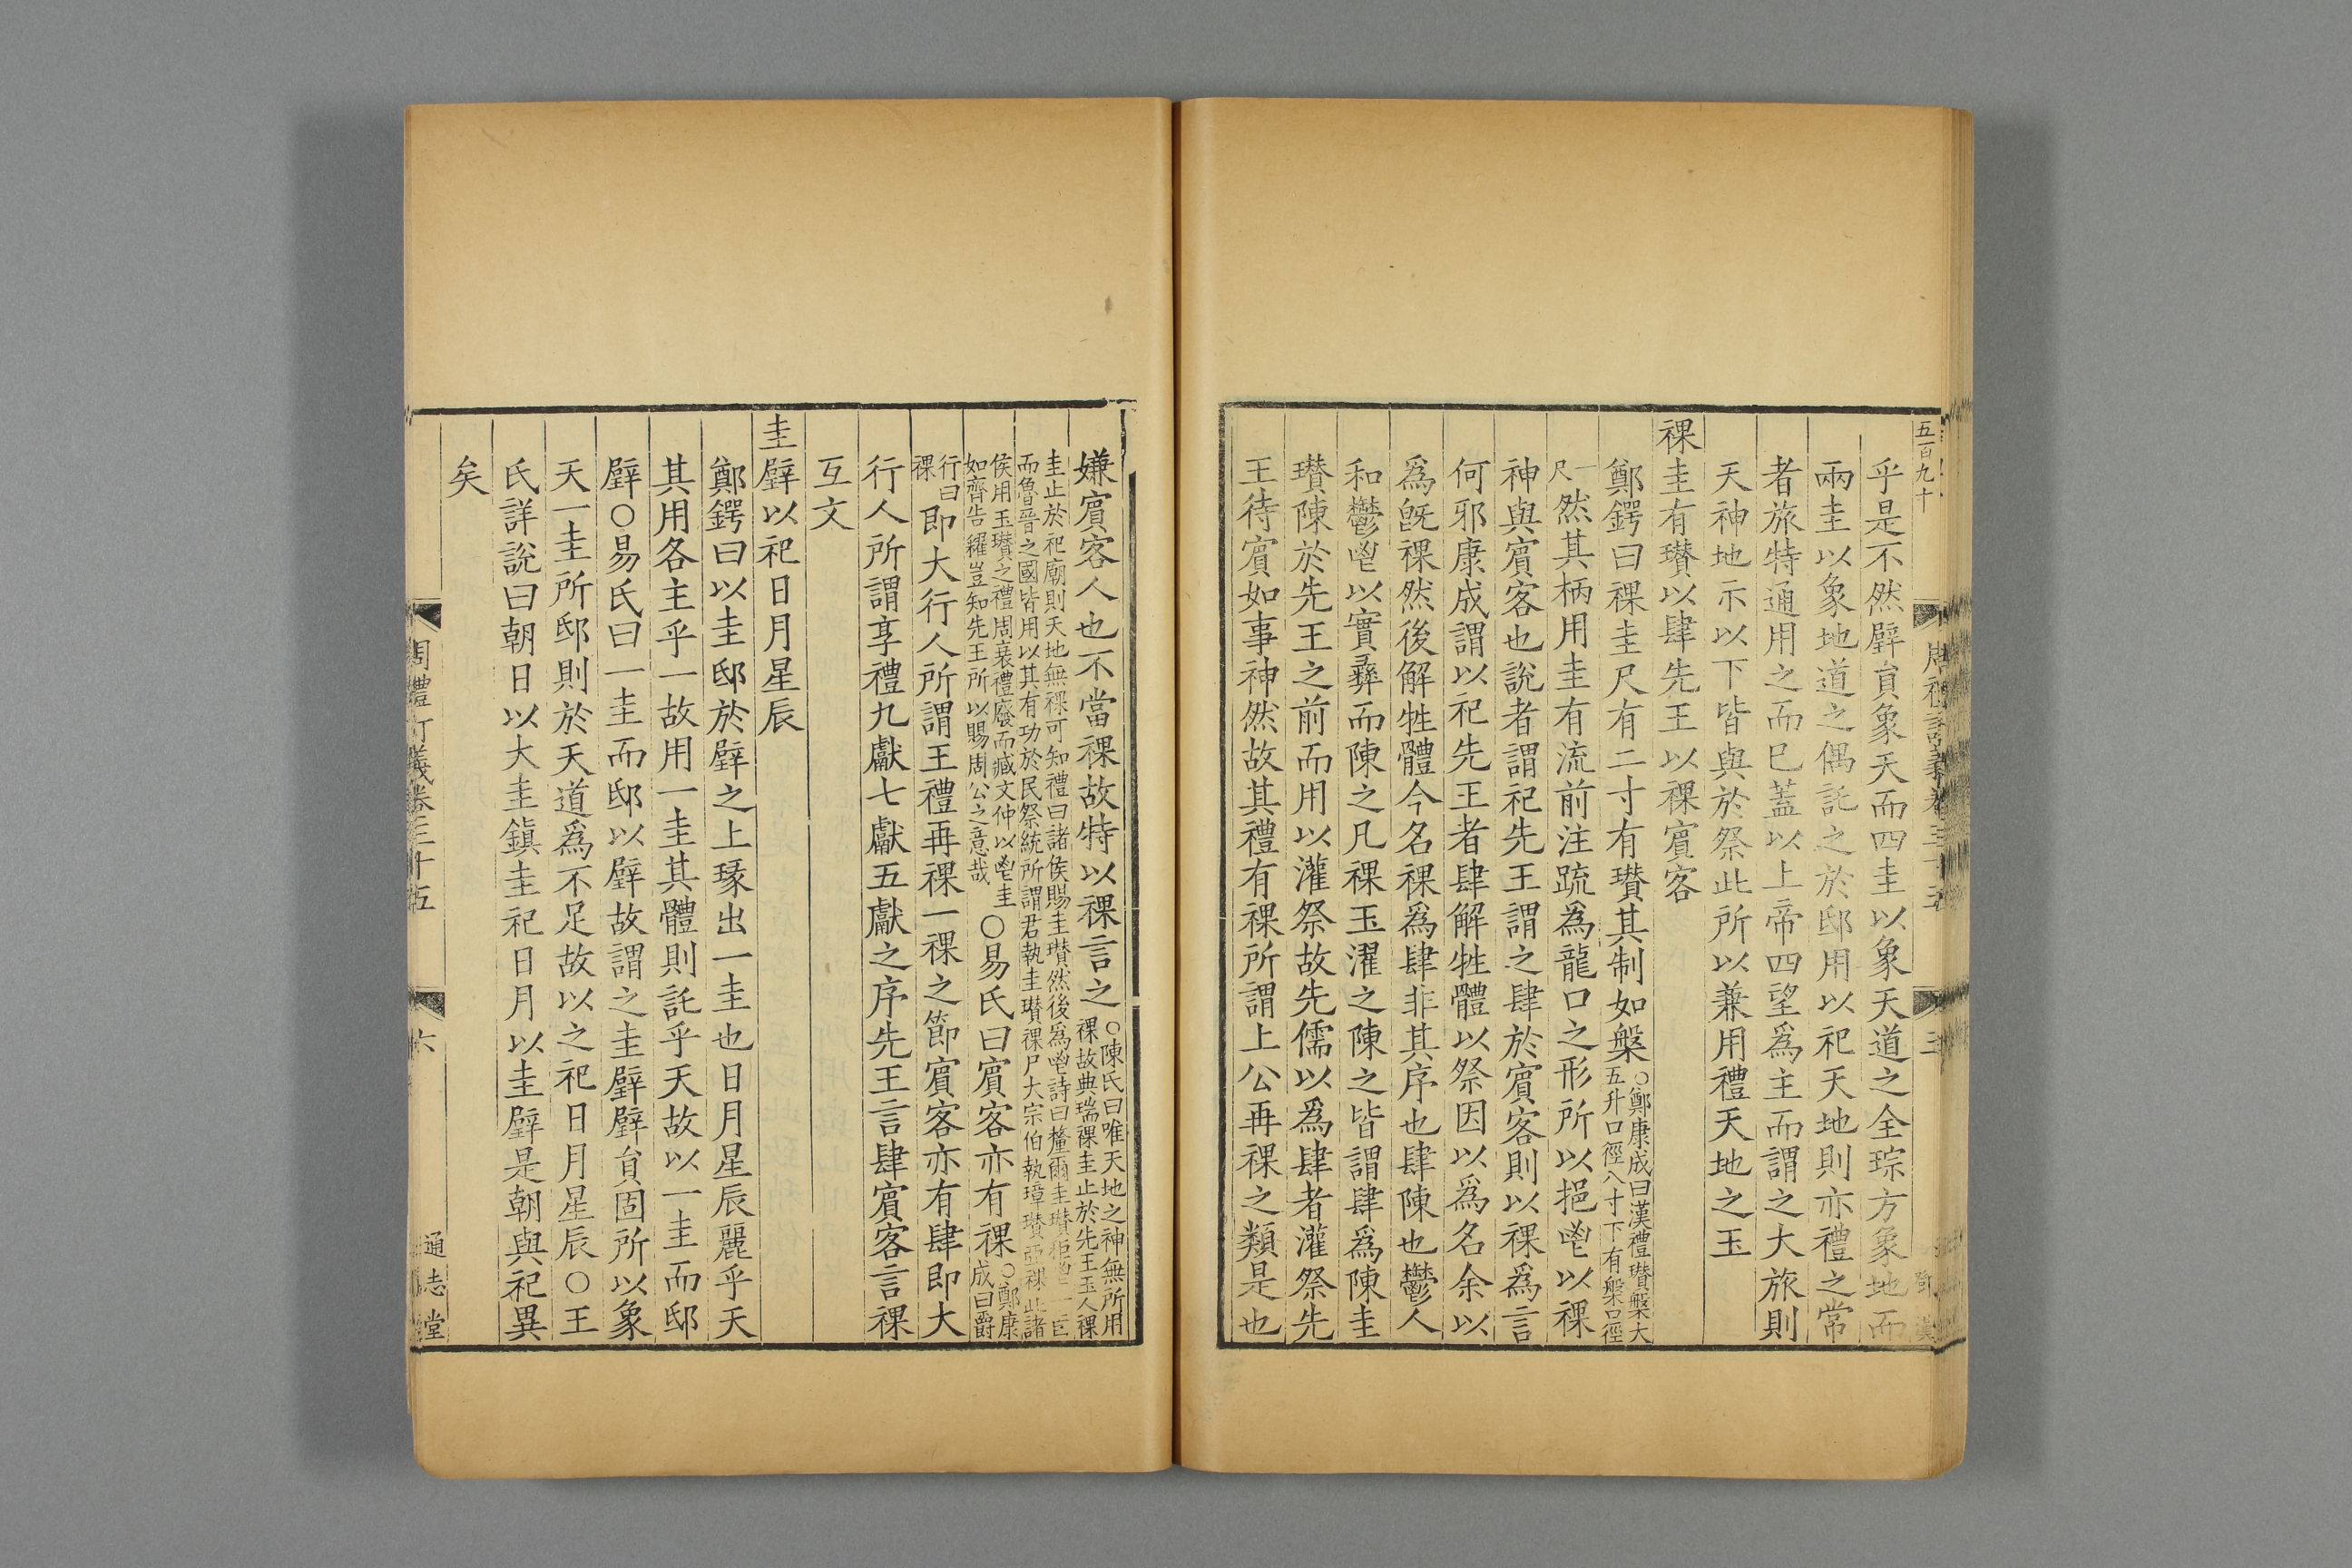 五百九十
乎是不然璧員象天而四圭以象天道之全琮方象地而
兩圭以象地道之偶託之於邸用以祀天地則亦禮之常
者旅特通用之而巳蓋以上帝四望爲主而謂之大旅則
天神地示以下皆與於祭此所以兼用禮天地之玉
祼圭有瓚以肆先王以祼賓客
鄭鍔曰祼圭尺有二寸有瓚其制如槃
○鄭康成曰漢禮瓚槃大
五升口徑八寸下有槃口徑
一
尺
然其柄用圭有流前注疏爲龍口之形所以挹鬯以祼
神與賓客也說者謂祀先王謂之肆於賓客則以祼爲言
何邪康成謂以祀先王者肆解牲體以祭因以爲名余以
爲旣祼然後解牲體今名祼爲肆非其序也肆陳也鬱人
和鬱鬯以實彝而陳之凡祼玉濯之陳之皆謂肆爲陳圭
瓚陳於先王之前而用以灌祭故先儒以爲肆者灌祭先
王待賓如事神然故其禮有祼所謂上公再祼之類是也
嫌賓客人也不當祼故特以祼言之
○陳氏曰唯天地之神無所用
祼故典瑞祼圭止於先王玉人祼
圭止於祀廟則天地無祼可知禮曰諸侯賜圭瓚然後爲鬯詩曰釐爾圭瓚秬鬯一卣
而魯晉之國皆用以其有功於民祭統所謂君執圭瓚祼尸大宗伯執璋瓚亞祼此諸
侯用玉瓚之禮周衰禮廢而臧文仲以鬯圭
如齊告糴豈知先王所以賜周公之意哉
○易氏曰賓客亦有祼
○鄭康
成曰爵
行曰
祼
即大行人所謂王禮再祼一祼之節賓客亦有肆即大
行人所謂享禮九獻七獻五獻之序先王言肆賓客言祼
互文
圭璧以祀日月星辰
鄭鍔曰以圭邸於璧之上琢出一圭也日月星辰麗乎天
其用各主乎一故用一圭其體則託乎天故以一圭而邸
璧○易氏曰一圭而邸以璧故謂之圭璧璧員固所以象
天一圭所邸則於天道爲不足故以之祀日月星辰○王
氏詳說曰朝日以大圭鎮圭祀日月以圭璧是朝與祀異
矣
周禮訂義卷三十五
六
通志堂